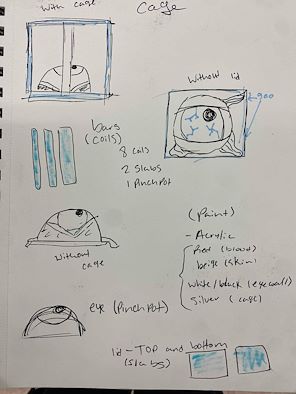 With cage
Cage
Without lid
goo
bars
(coils)
8 coils
2 Slabs
1 Pinch Pot
Without
cage
(Paint)
- Acrylic
Red (blood)
beige (skin)
white/black (eyeball)
Silver (cage)
eye (Pinch Pot)
lid - TOP and bottom
(Slabs)